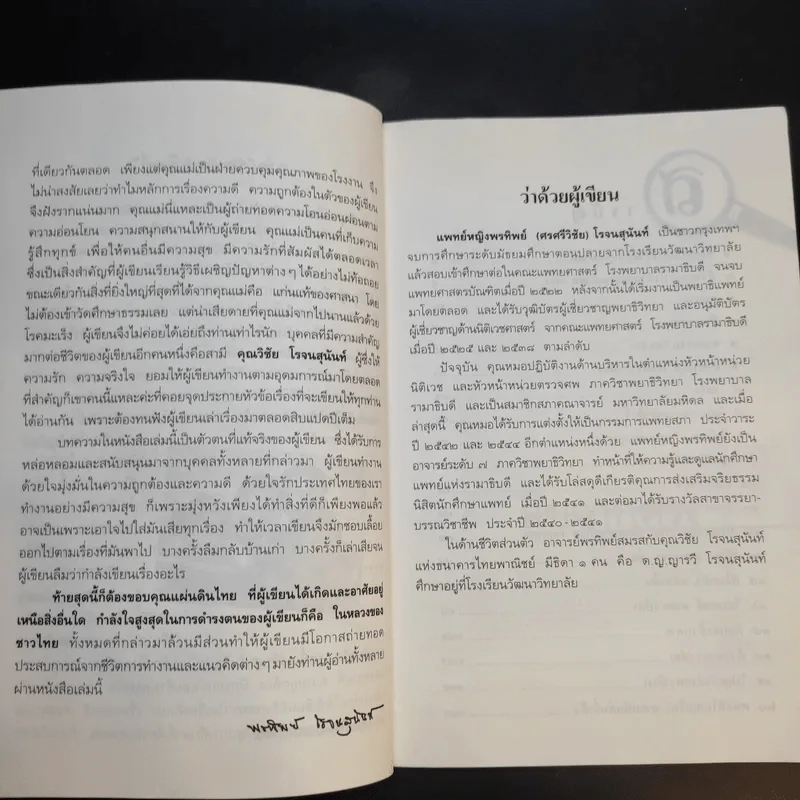 ที่เดียวกันตลอด เพียงแต่คุณแม่เป็นฝ่ายควบคุมคุณภาพของโรงงาน จึง
ไม่น่าสงสัยเลยว่าทำไมหลักการเรื่องความดี ความถูกต้องในตัวของผู้เขียน
จึงฝังรากแน่นมาก คุณแม่นี่แหละเป็นผู้ถ่ายทอดความโอนอ่อนผ่อนตาม
ความอ่อนโยน ความสนุกสนานให้กับผู้เขียน คุณแม่เป็นคนที่เก็บความ
รู้สึกทุกข์ เพื่อให้คนอื่นมีความสุข มีความรักที่สัมผัสได้ตลอดเวลา
ซึ่งเป็นสิ่งสำคัญที่ผู้เขียนเรียนรู้วิธีเผชิญปัญหาต่าง ๆ ได้อย่างไม่ท้อถอย
ขณะเดียวกันสิ่งที่ยิ่งใหญ่ที่สุดที่ได้จากคุณแม่คือ แก่นแท้ของศาสนา โดย
ไม่ต้องเข้าวัดศึกษาธรรมเลย แต่น่าเสียดายที่คุณแม่จากไปนานแล้วด้วย
โรคมะเร็ง ผู้เขียนจึงไม่ค่อยได้เอ่ยถึงท่านเท่าไรนัก บุคคลที่มีความสำคัญ
มากต่อชีวิตของผู้เขียนอีกคนหนึ่งคือสามี คุณวิชัย โรจนสุนันท์ ผู้ซึ่งให้
ความรัก ความจริงใจ ยอมให้ผู้เขียนทำงานตามอุดมการณ์มาโดยตลอด
ที่สำคัญก็เขาคนนี้แหละค่ะที่คอยจุดประกายหัวข้อเรื่องที่จะเขียนให้ทุกท่าน
ได้อ่านกัน เพราะต้องทนฟังผู้เขียนเล่าเรื่องมาตลอดสิบแปดปีเต็ม
บทความในหนังสือเล่มนี้เป็นตัวตนที่แท้จริงของผู้เขียน ซึ่งได้รับการ
หล่อหลอมและสนับสนุนมาจากบุคคลทั้งหลายที่กล่าวมา ผู้เขียนทำงาน
ด้วยใจมุ่งมั่นในความถูกต้องและความดี ด้วยใจรักประเทศไทยของเรา
ทำงานอย่างมีความสุข ก็เพราะมุ่งหวังเพียงได้ทำสิ่งที่ดีก็เพียงพอแล้ว
อาจเป็นเพราะเอาใจไปใส่มันเสียทุกเรื่อง ทำให้เวลาเขียนจึงมักชอบเลื้อย
ออกไปตามเรื่องที่มันพาไป บางครั้งก็ลืมกลับบ้านเก่า บางครั้งก็เล่าเสียจน
ผู้เขียนลืมว่ากำลังเขียนเรื่องอะไร
ท้ายสุดนี้ก็ต้องขอบคุณแผ่นดินไทย ที่ผู้เขียนได้เกิดและอาศัยอยู่
เหนือสิ่งอื่นใด กำลังใจสูงสุดในการดำรงตนของผู้เขียนก็คือ ในหลวงของ
ชาวไทย ทั้งหมดที่กล่าวมาล้วนมีส่วนทำให้ผู้เขียนมีโอกาสถ่ายทอด
ประสบการณ์จากชีวิตการทำงานและแนวคิดต่าง ๆ มายังท่านผู้อ่านทั้งหลาย
ผ่านหนังสือเล่มนี้
พรทิพย์ โรจนสุนันท์
ว่าด้วยผู้เขียน
แพทย์หญิงพรทิพย์ (ศรศรีวิชัย) โรจนสุนันท์ เป็นชาวกรุงเทพฯ
จบการศึกษาระดับมัธยมศึกษาตอนปลายจากโรงเรียนวัฒนาวิทยาลัย
แล้วสอบเข้าศึกษาต่อในคณะแพทยศาสตร์ โรงพยาบาลรามาธิบดี จนจบ
แพทยศาสตรบัณฑิตเมื่อปี ๒๕๒๒ หลังจากนั้นได้เริ่มงานเป็นพยาธิแพทย์
มาโดยตลอด และได้รับวุฒิบัตรผู้เชี่ยวชาญพยาธิวิทยา และอนุมัติบัตร
ผู้เชี่ยวชาญด้านนิติเวชศาสตร์ จากคณะแพทยศาสตร์ โรงพยาบาลรามาธิบดี
เมื่อปี ๒๕๒๕ และ ๒๕๓๘ ตามลำดับ
ปัจจุบัน คุณหมอปฏิบัติงานด้านบริหารในตำแหน่งหัวหน้าหน่วย
นิติเวช และหัวหน้าหน่วยตรวจศพ ภาควิชาพยาธิวิทยา โรงพยาบาล
รามาธิบดี และเป็นสมาชิกสภาคณาจารย์ มหาวิทยาลัยมหิดล และเมื่อ
ล่าสุดนี้ คุณหมอได้รับการแต่งตั้งให้เป็นกรรมการแพทยสภา ประจำวาระ
ปี ๒๕๔๒ และ ๒๕๔๔ อีกตำแหน่งหนึ่งด้วย แพทย์หญิงพรทิพย์ยังเป็น
อาจารย์ระดับ ๗ ภาควิชาพยาธิวิทยา ทำหน้าที่ให้ความรู้และดูแลนักศึกษา
แพทย์แห่งรามาธิบดี และได้รับโล่สดุดีเกียรติคุณการส่งเสริมจริยธรรม
นิสิตนักศึกษาแพทย์ เมื่อปี ๒๕๔๑ และต่อมาได้รับรางวัลสาขาจรรยา-
บรรณวิชาชีพ ประจำปี ๒๕๔๐-๒๕๔๑
ในด้านชีวิตส่วนตัว อาจารย์พรทิพย์สมรสกับคุณวิชัย โรจนสุนันท์
แห่งธนาคารไทยพาณิชย์ มีธิดา ๑ คน คือ ด.ญ.ญารวี โรจนสุนันท์
ศึกษาอยู่ที่โรงเรียนวัฒนาวิทยาลัย